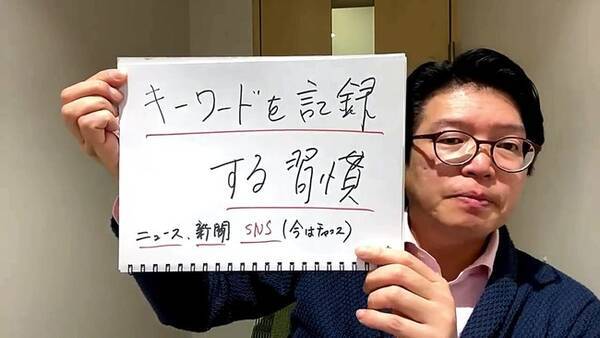 キーワードを記録
する習慣
ニュース、新聞 SNS (今はチャンス)